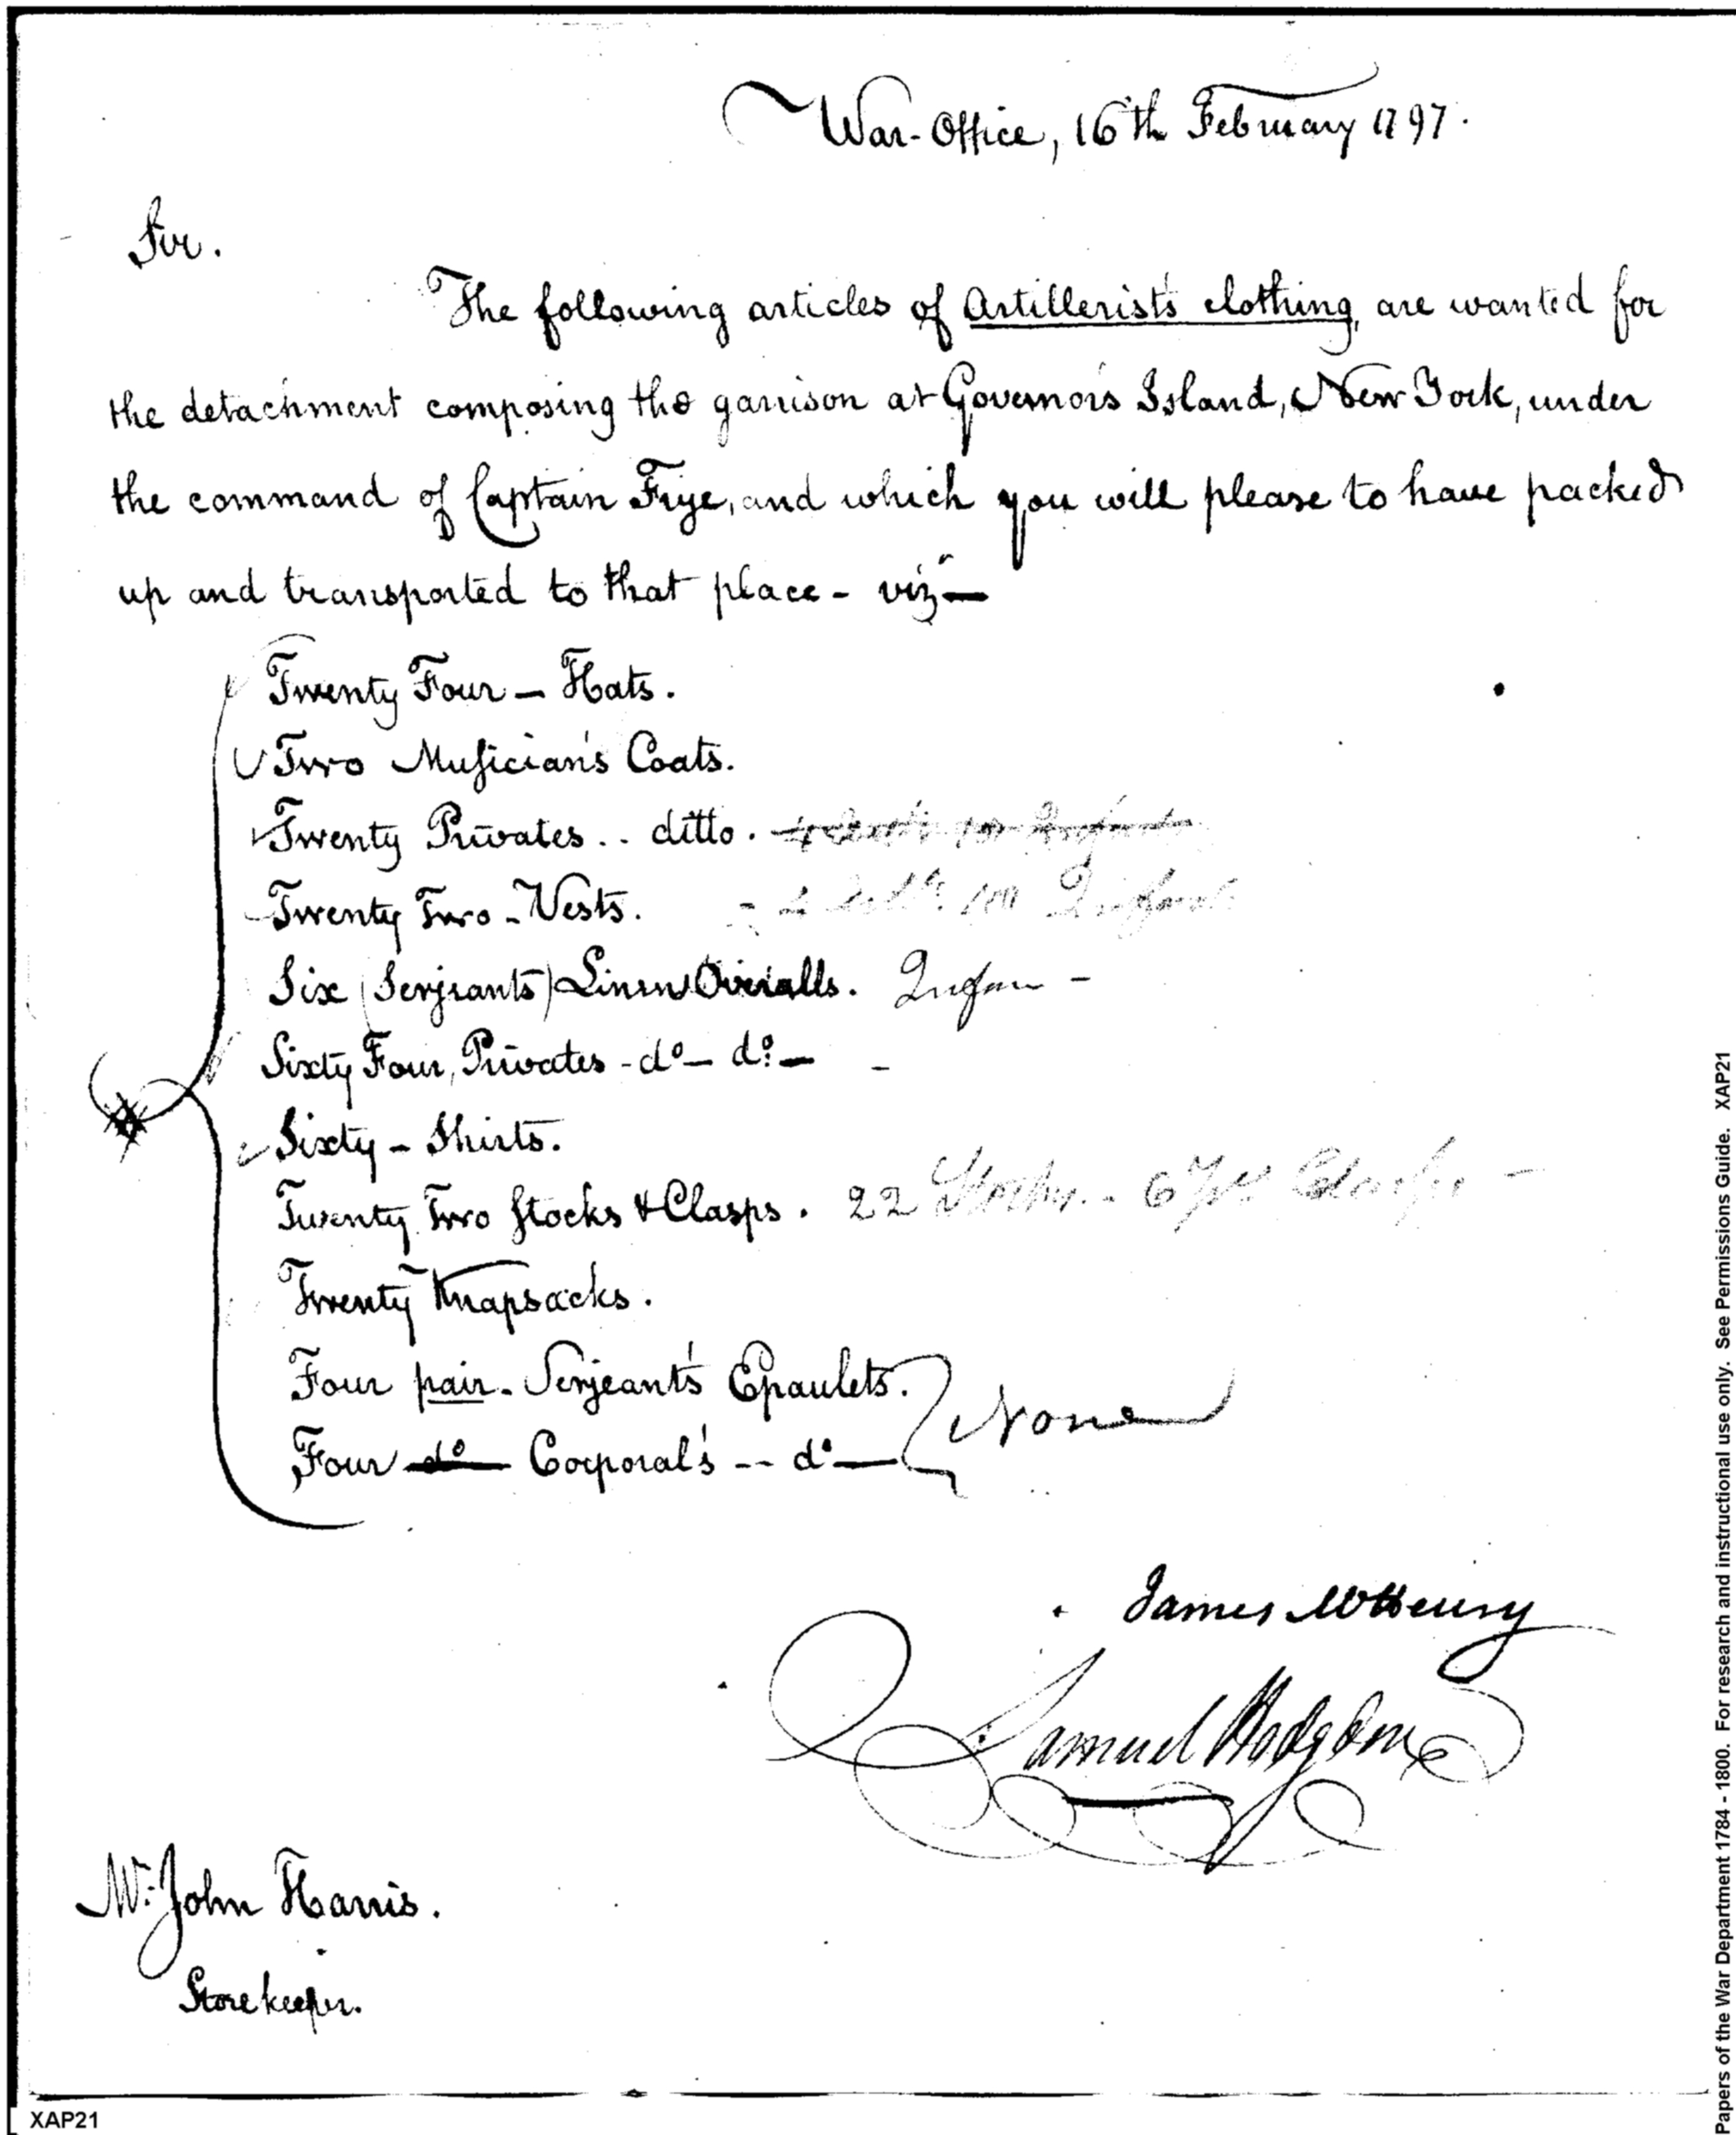 War-Office, 16th February 1797.
Sir.
The following articles of Artillerist's clothing, are wanted for
the detachment composing the garrison at Governor's Island, New York, under
the command of Captain Frye, and which you will please to have packed
up and transported to that place - viz —
Twenty Four — Hats.
Two Musician's Coats.
Twenty Privates .. ditto.
Twenty Two - Vests.
Six (Serjeants) Linen Overalls. Infan -
Sixty Four, Privates - do — do —
Sixty - Shirts.
Twenty Two Stocks & Clasps. 22 Stocks - 6 Clasps -
Twenty Knapsacks.
Four pair - Serjeant's Epaulets.
None
Four do Corporal's -- do —
James McHenry
Samuel Hodgdon
Mr. John Harris.
Storekeeper.
XAP21
Papers of the War Department 1784 - 1800. For research and instructional use only. See Permissions Guide. XAP21